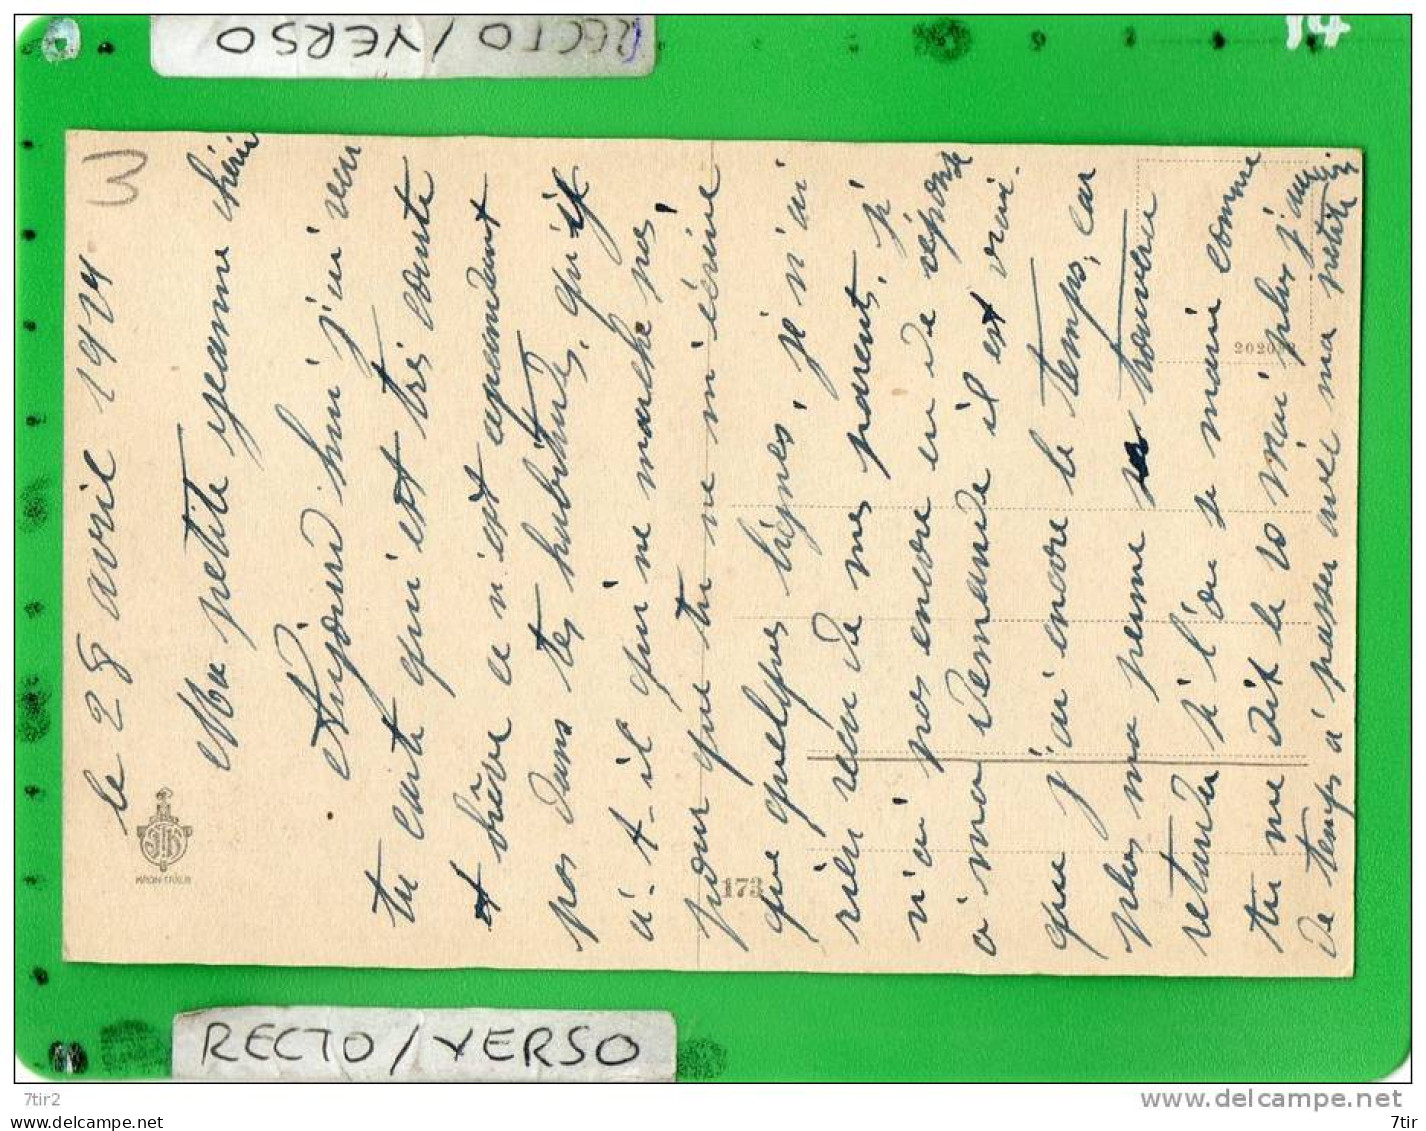 RECTO/VERSO
14
3
le 28 avril 1914
Ma petite Jeanne chérie
Aujourd hui j'ai reçu
ta carte qui est très courte
et brève ce n'est apeandant
pas dans tes habitudes, qu'y
a-t-il qui ne marche pas
pour que tu ne m'écrive
que quelques lignes, je n'ai
rien reçu de mes parents, j
n'ai pas encore eu de réponse
a ma demande il est vrai.
que j'ai encore le temps, car
plus ma perme se trouvera
retarder à l'on se marie comme
tu me dit le 20 Mai plus j'aurai
de temps a passer avec ma petite
KRON-TRIER
173
RECTO/VERSO
7tir2
www.delcampe.net
7tir